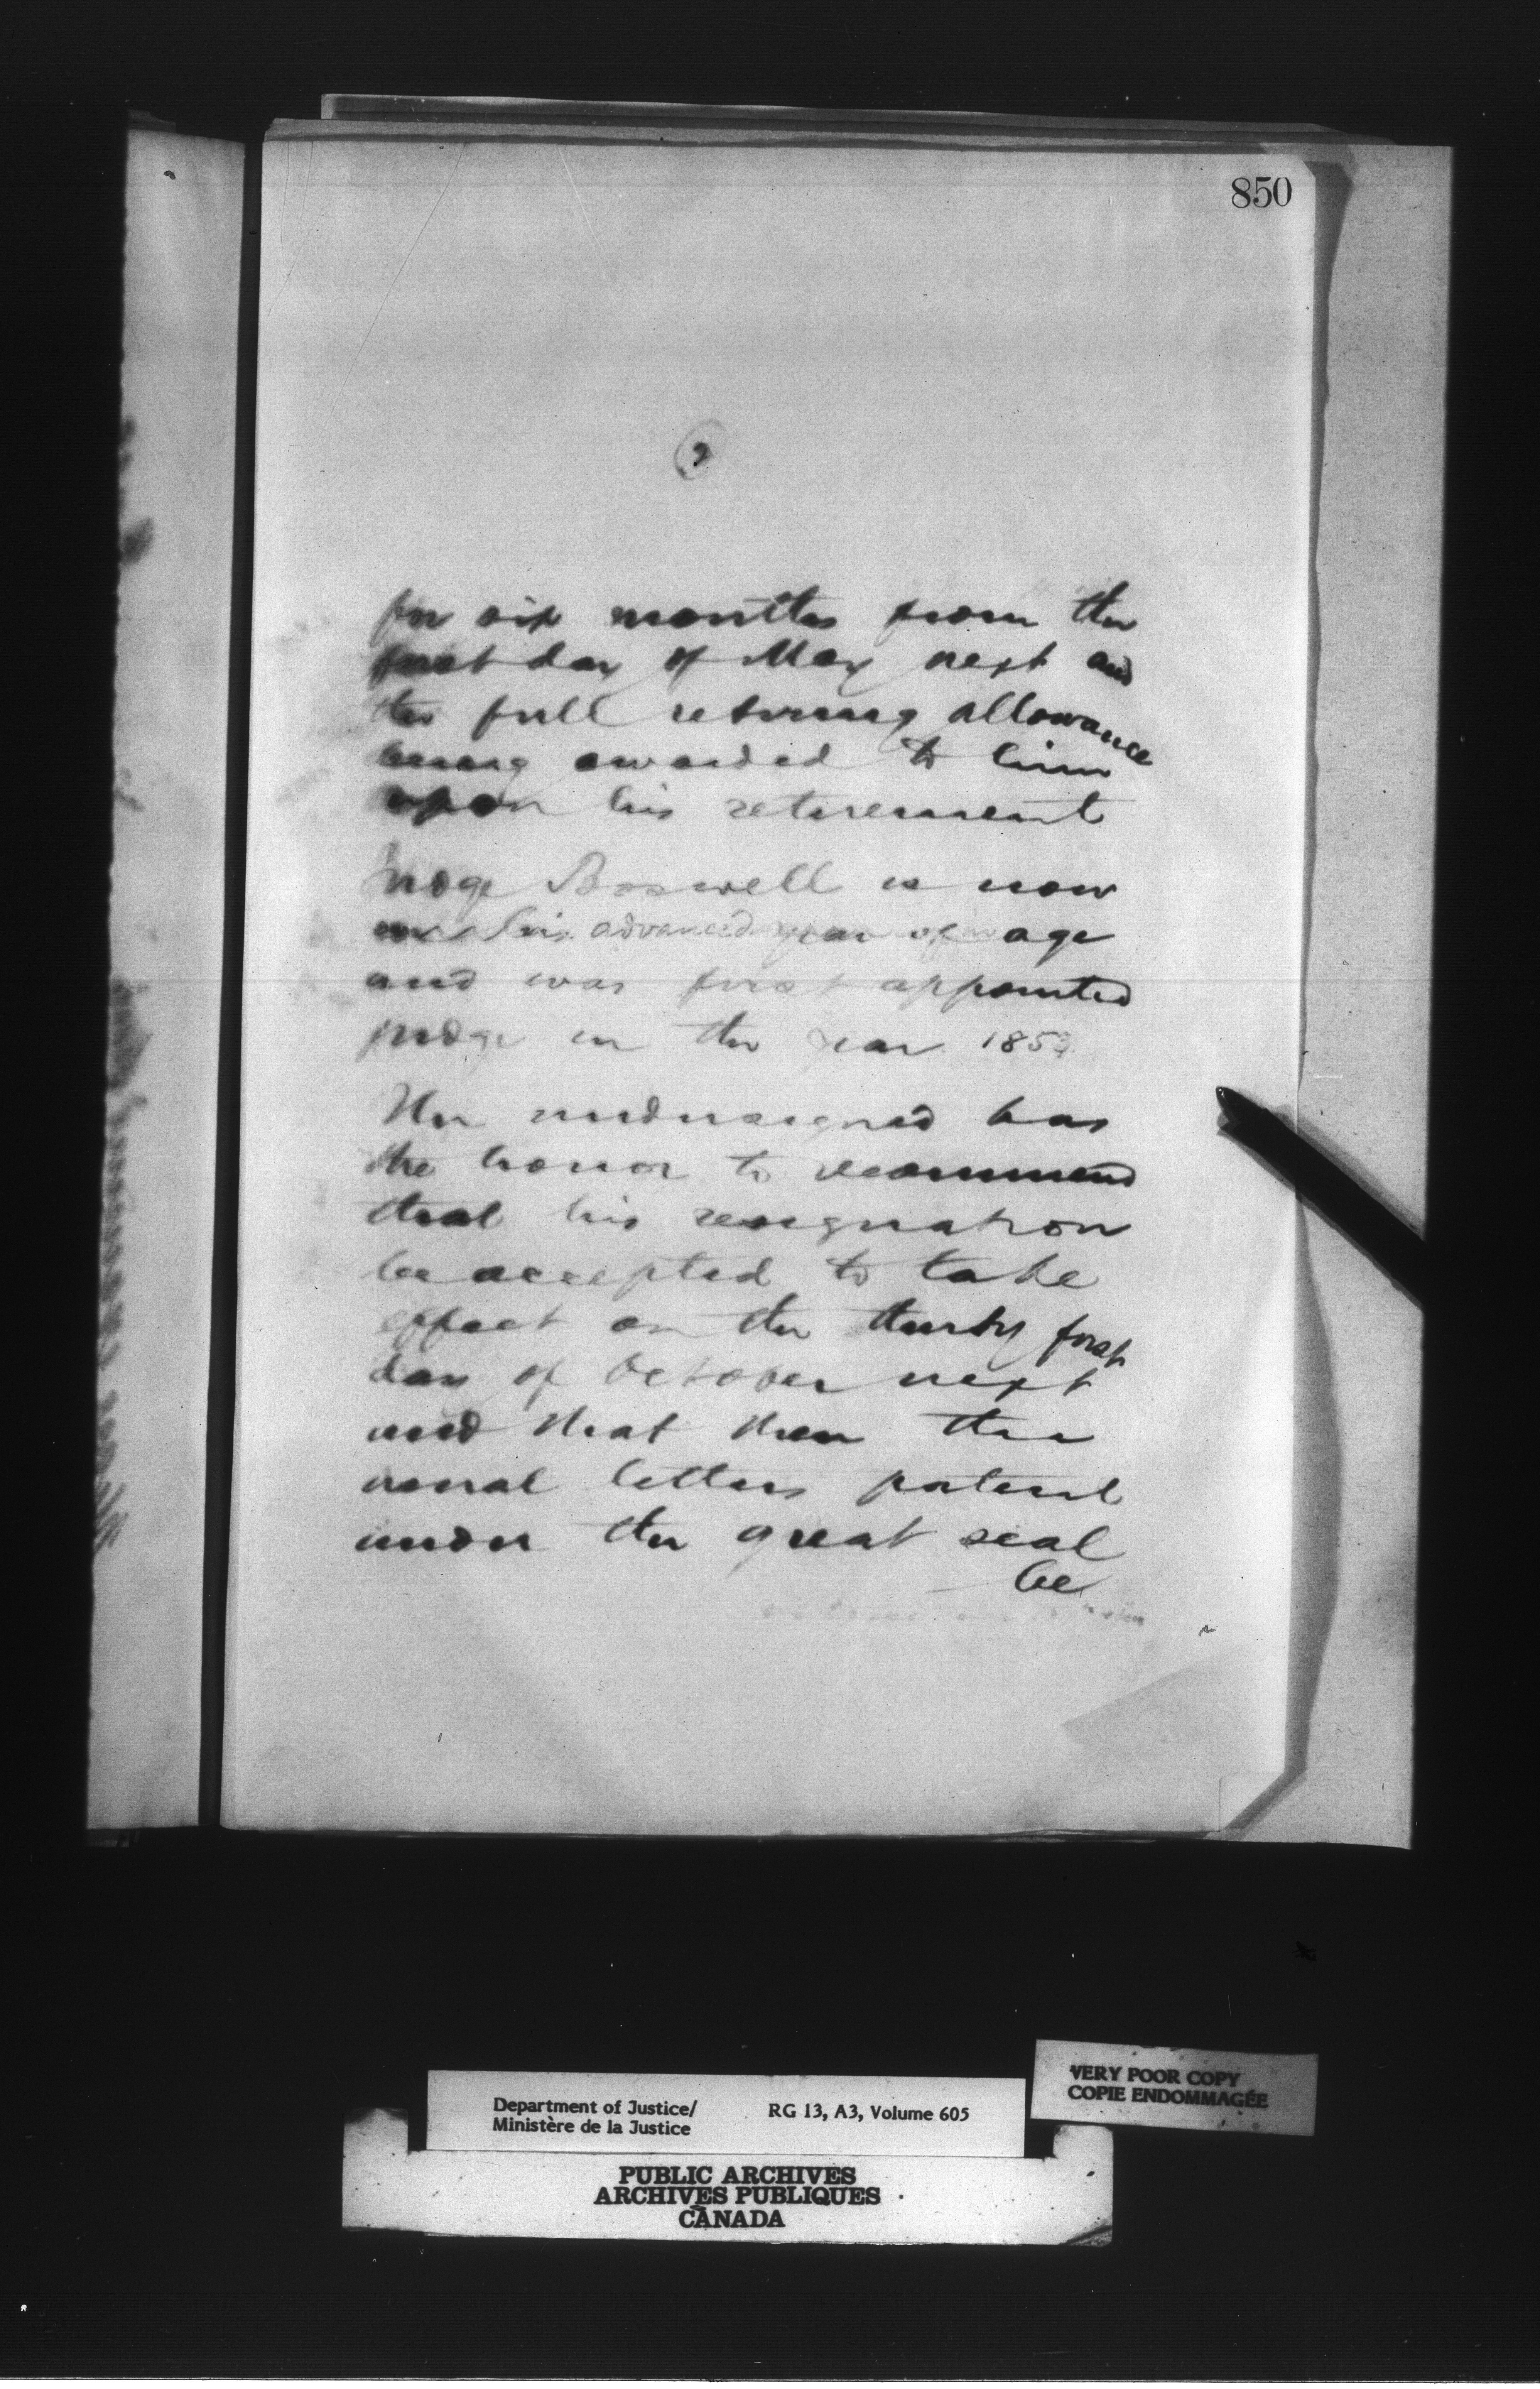 850
2
for six months from the
first day of May next and
the full retiring allowance
being awarded to him
upon his retirement
Judge Boswell is now
in his advanced year of age
and was first appointed
judge in the year
The undersigned has
the honor to recommend
that his resignation
be accepted to take
effect on the thirty first
day of October next
and that then the
usual letters patent
under the great seal
be
VERY POOR COPY
COPIE ENDOMMAGÉE
Department of Justice/ RG 13, A3, Volume 605
Ministère de la Justice
PUBLIC ARCHIVES
ARCHIVES PUBLIQUES
CANADA